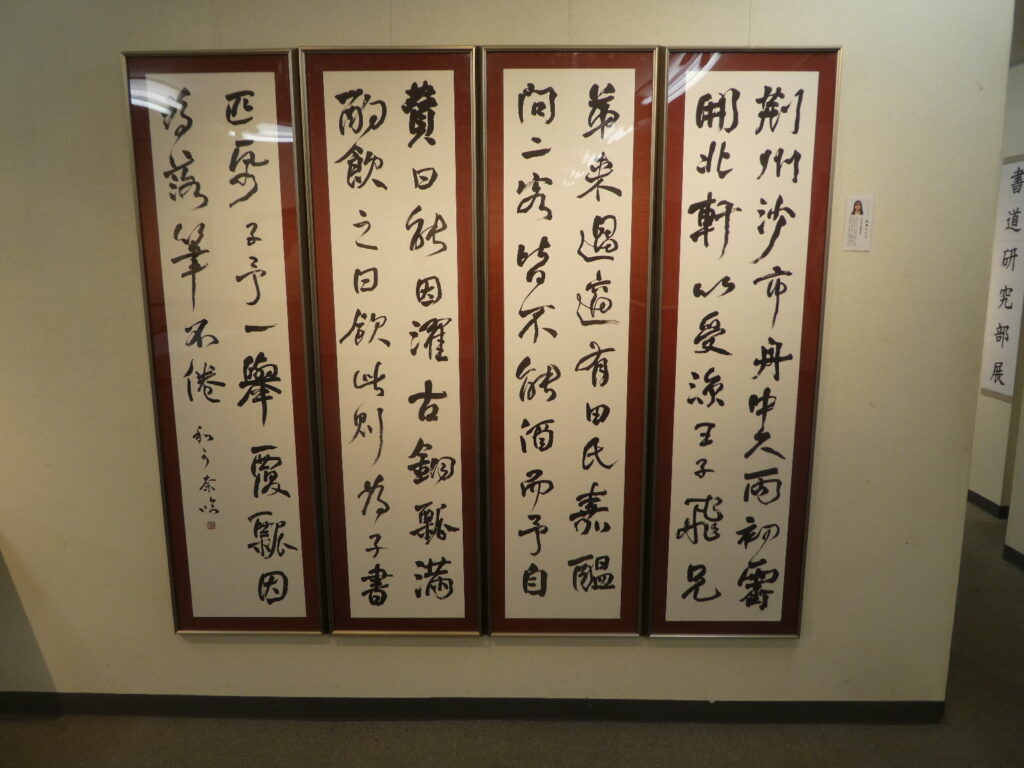 荊州沙市舟中久雨初霽
開北軒以受涼王子飛兄
弟来過適有田氏嘉醞
問二客皆不能酒而予自
贊曰能因濯古銅瓢満
酌飲之曰飲此則為子書
匹紙子予一舉覆瓢因
為落筆不倦
書道研究部展